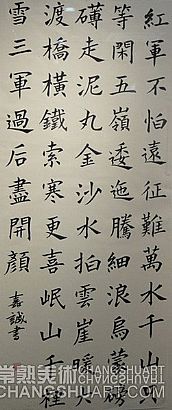 紅軍不怕遠征難萬水千山只
等閑五嶺逶迤騰細浪烏蒙磅
礴走泥丸金沙水拍雲崖暖大
渡橋橫鐵索寒更喜岷山千裡
雪三軍過后盡開顏
嘉誠書